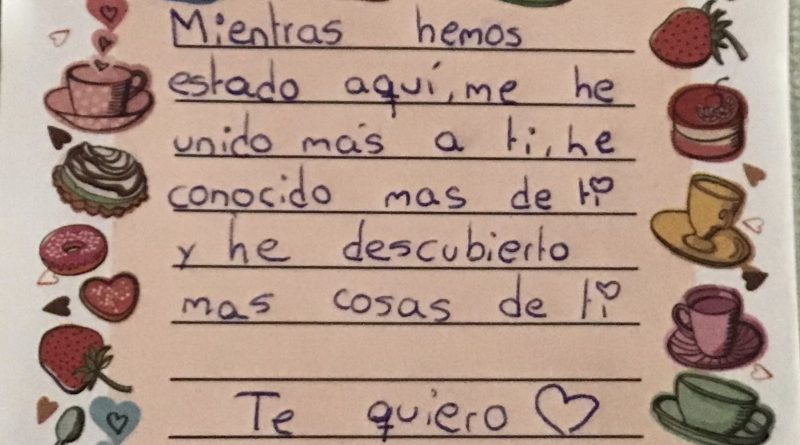 Mientras hemos
estado aquí, me he
unido más a ti, he
conocido mas de ti
y he descubierto
mas cosas de ti
Te quiero ♡